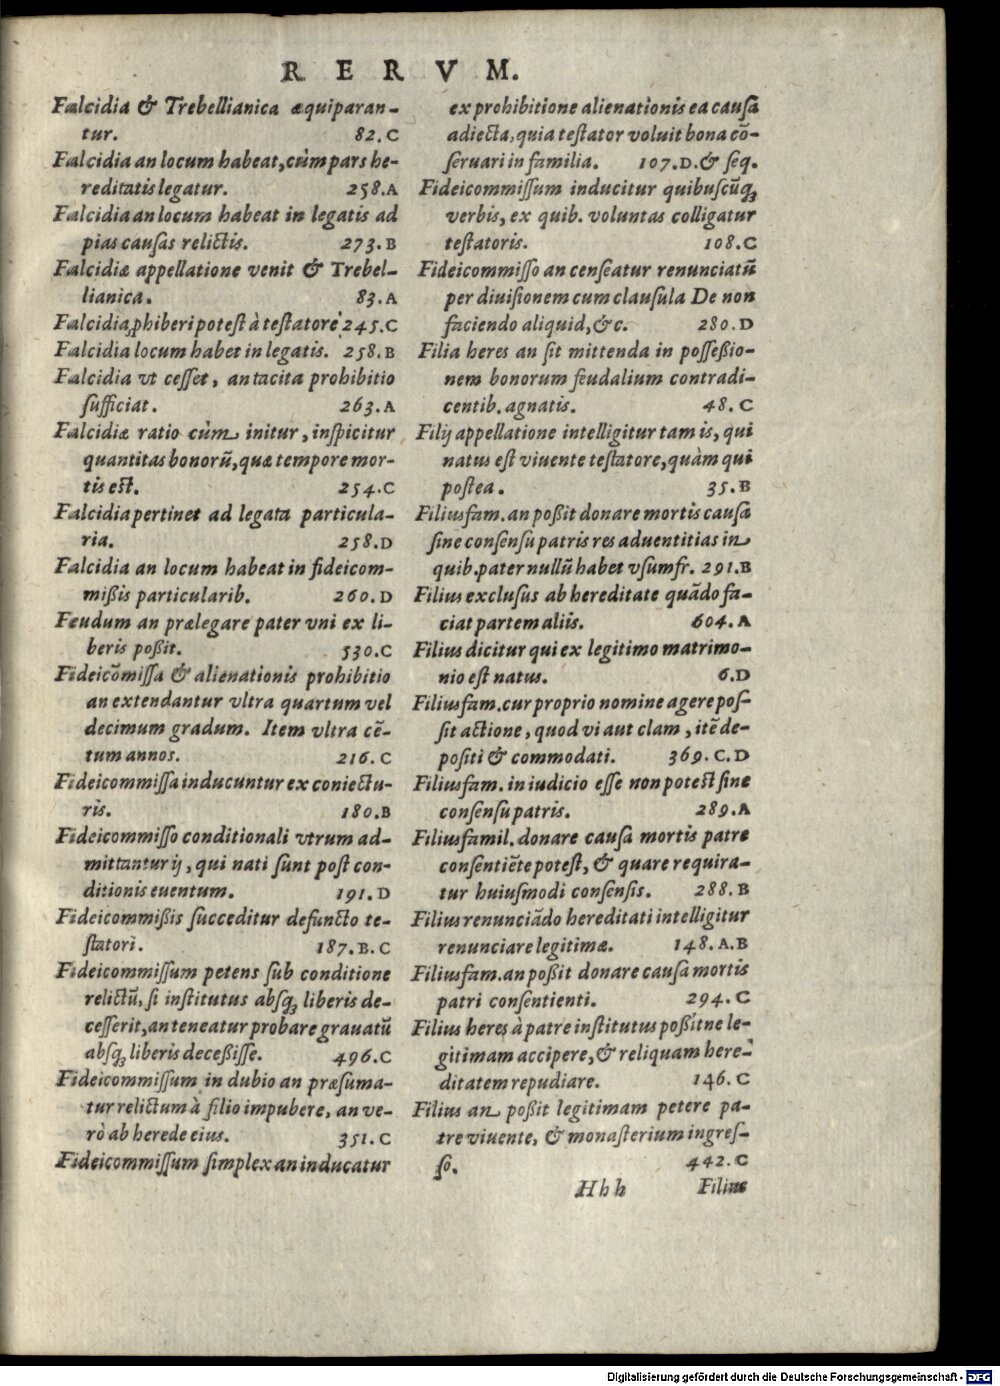 RERVM.
Falcidia & Trebellianica æquiparan-
tur. 82.C
Falcidia an locum habeat, cùm pars he-
reditatis legatur. 258.A
Falcidia an locum habeat in legatis ad
pias causas relictis. 273.B
Falcidiæ appellatione venit & Trebel-
lianica. 83.A
Falcidia ꝓhiberi potest à testatore 245.C
Falcidia locum habet in legatis. 258.B
Falcidia vt cesset, an tacita prohibitio
sufficiat. 263.A
Falcidiæ ratio cùm initur, inspicitur
quantitas bonorū, quæ tempore mor-
tis est. 254.C
Falcidia pertinet ad legata particula-
ria. 258.D
Falcidia an locum habeat in fideicom-
mißis particularib. 260.D
Feudum an prælegare pater vni ex li-
beris poßit. 530.C
Fideicōmissa & alienationis prohibitio
an extendantur vltra quartum vel
decimum gradum. Item vltra cē-
tum annos. 216.C
Fideicommissa inducuntur ex coniectu-
ris. 180.B
Fideicommisso conditionali vtrum ad-
mittantur ij, qui nati sunt post con-
ditionis euentum. 191.D
Fideicommißis succeditur defuncto te-
statori. 187.B.C
Fideicommissum petens sub conditione
relictū, si institutus absq; liberis de-
cesserit, an teneatur probare grauatū
absq; liberis deceßisse. 496.C
Fideicommissum in dubio an præsuma-
tur relictum à filio impubere, an ve-
rò ab herede eius. 351.C
Fideicommissum simplex an inducatur
ex prohibitione alienationis ea causa
adiecta, quia testator voluit bona cō-
seruari in familia. 107.D.& seq.
Fideicommissum inducitur quibuscūq;
verbis, ex quib. voluntas colligatur
testatoris. 108.C
Fideicommisso an censeatur renunciatū
per diuisionem cum clausula De non
faciendo aliquid, &c. 280.D
Filia heres an sit mittenda in posseßio-
nem bonorum feudalium contradi-
centib. agnatis. 48.C
Filij appellatione intelligitur tam is, qui
natus est viuente testatore, quàm qui
postea. 35.B
Filiusfam. an poßit donare mortis causa
sine consensu patris res aduentitias in
quib. pater nullū habet vsumfr. 291.B
Filius exclusus ab hereditate quādo fa-
ciat partem aliis. 604.A
Filius dicitur qui ex legitimo matrimo-
nio est natus. 6.D
Filiusfam. cur proprio nomine agere pos-
sit actione, quod vi aut clam, itē de-
positi & commodati. 369.C.D
Filiusfam. in iudicio esse non potest sine
consensu patris. 289.A
Filiusfamil. donare causa mortis patre
consentiēte potest, & quare requira-
tur huiusmodi consensis. 288.B
Filius renunciādo hereditati intelligitur
renunciare legitimæ. 148.A.B
Filiusfam. an poßit donare causa mortis
patri consentienti. 294.C
Filius heres à patre institutus poßitne le-
gitimam accipere, & reliquam here-
ditatem repudiare. 146.C
Filius an poßit legitimam petere pa-
tre viuente, & monasterium ingres-
so. 442.C
Hhh Filius
Digitalisierung gefördert durch die Deutsche Forschungsgemeinschaft - DFG